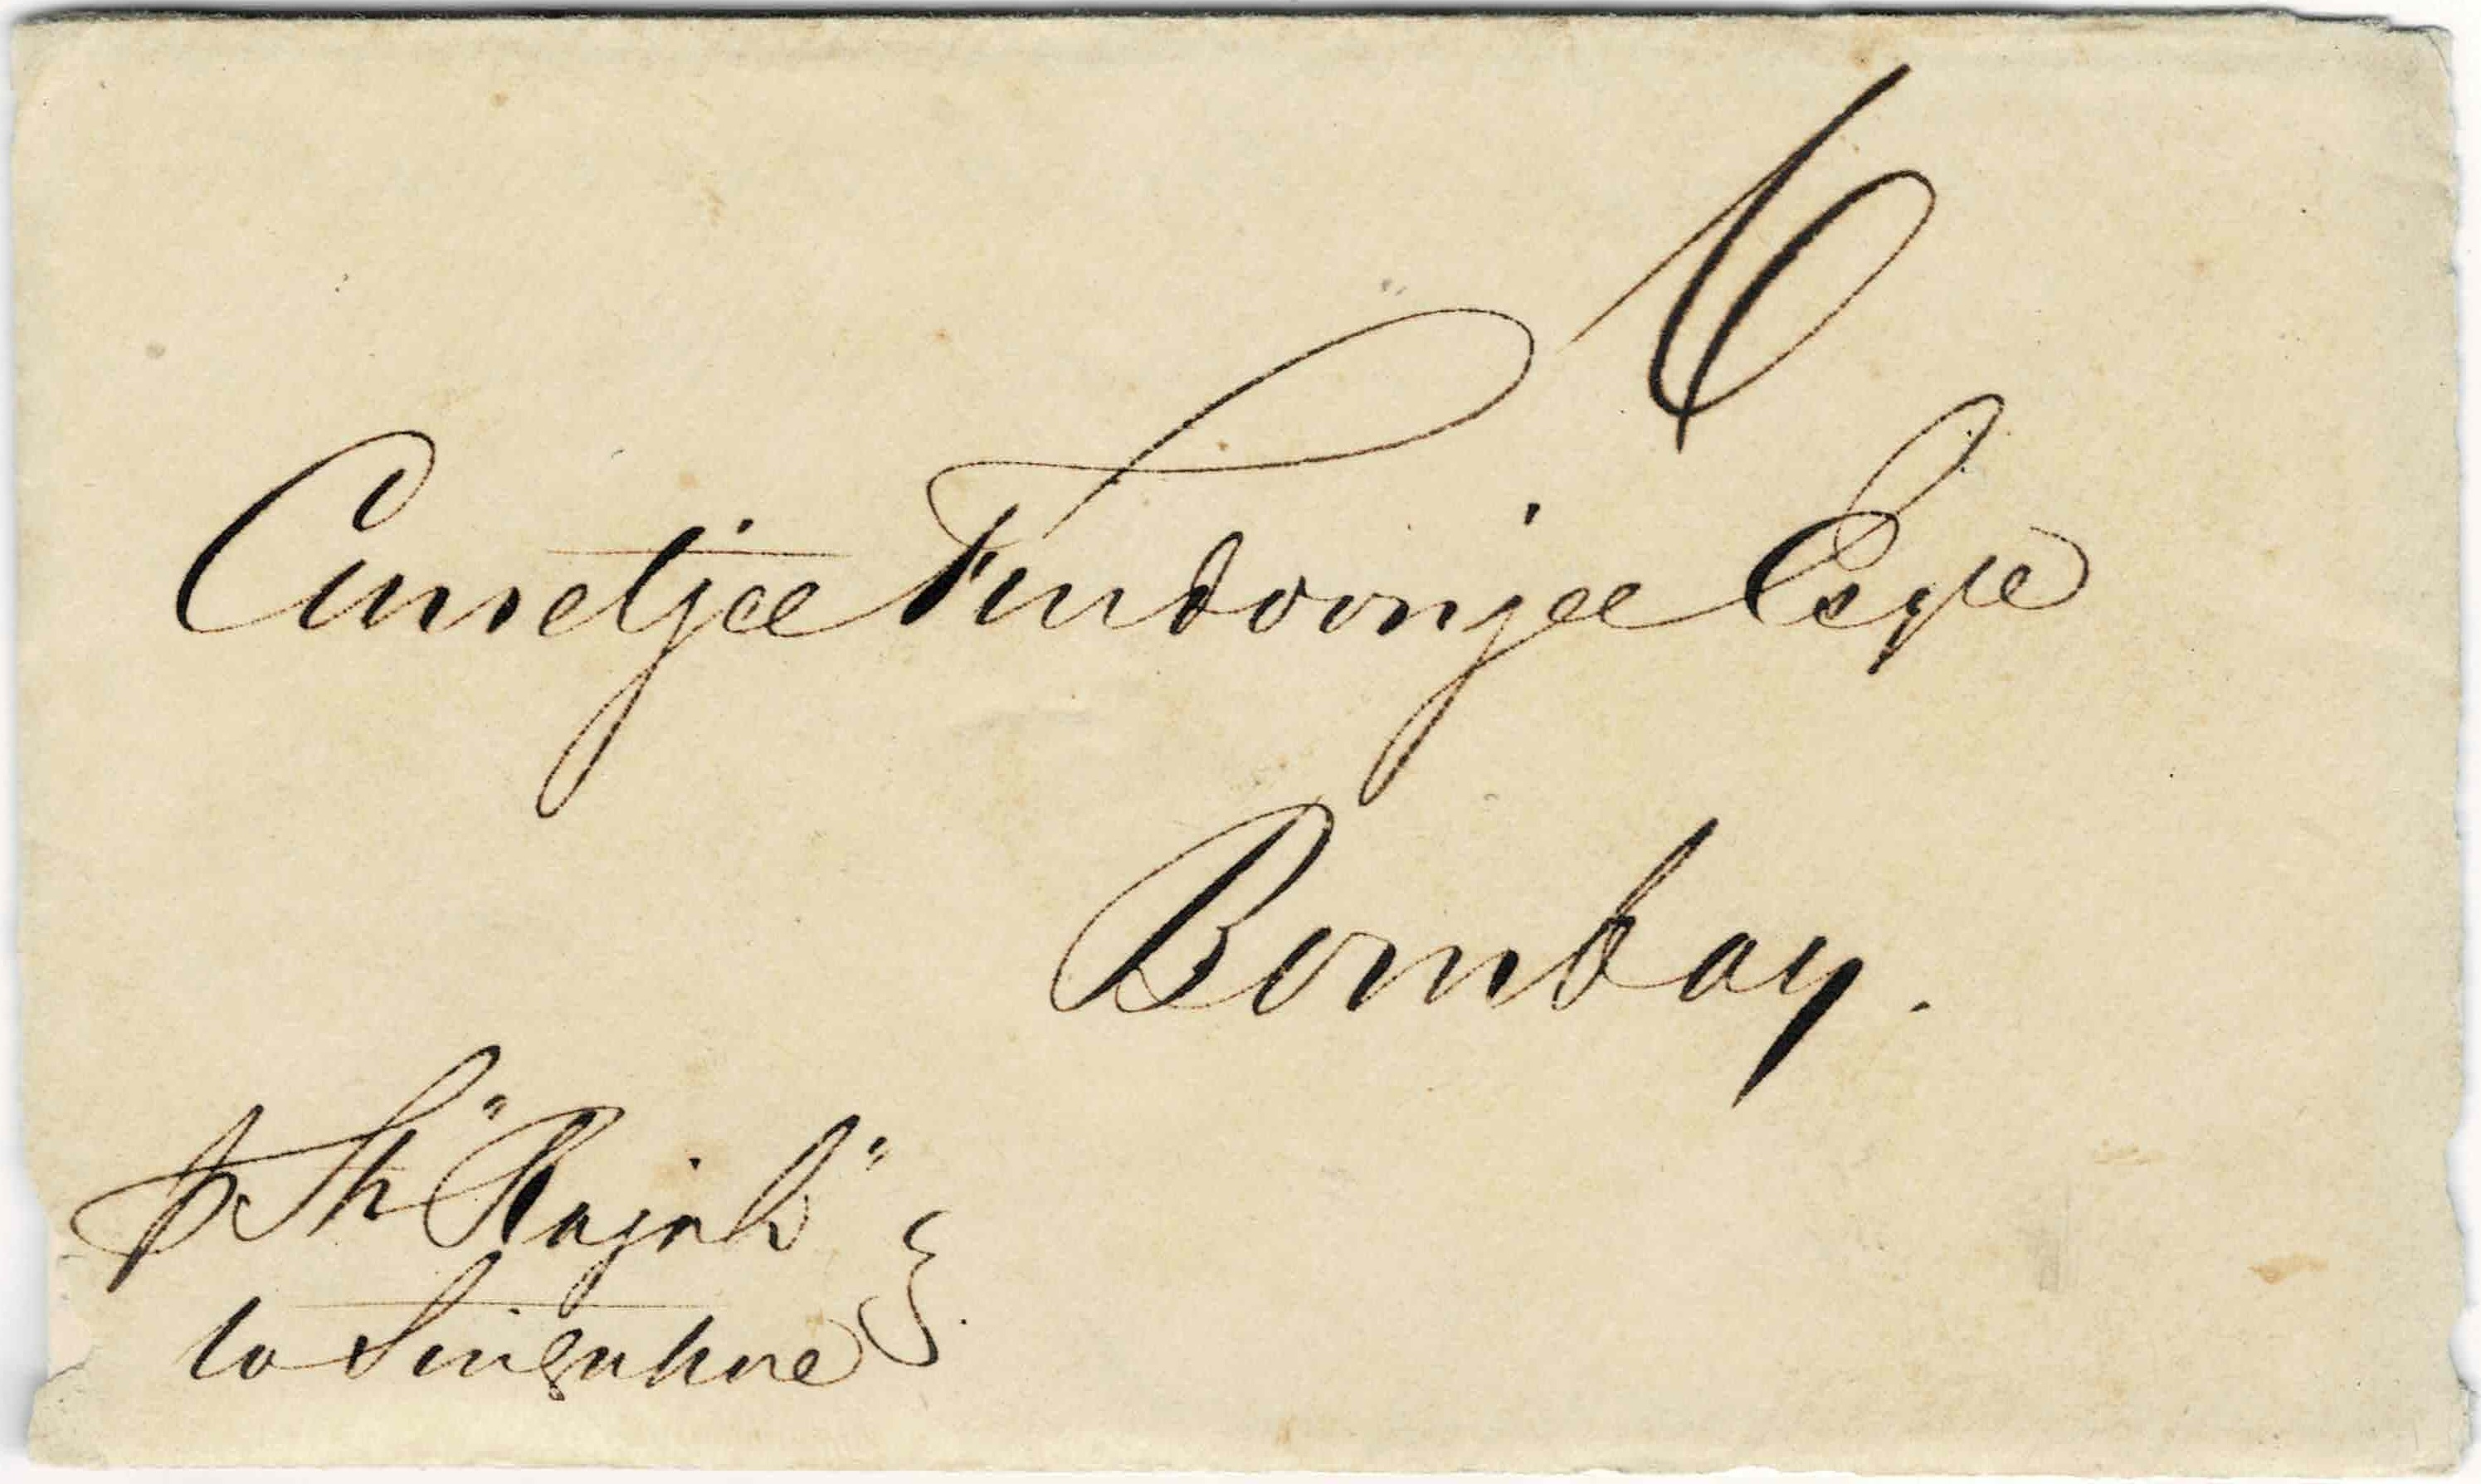 6
Cursetjee Furdoonjee Esqre
Bombay.
pr Str "Rajah"
to Singapore